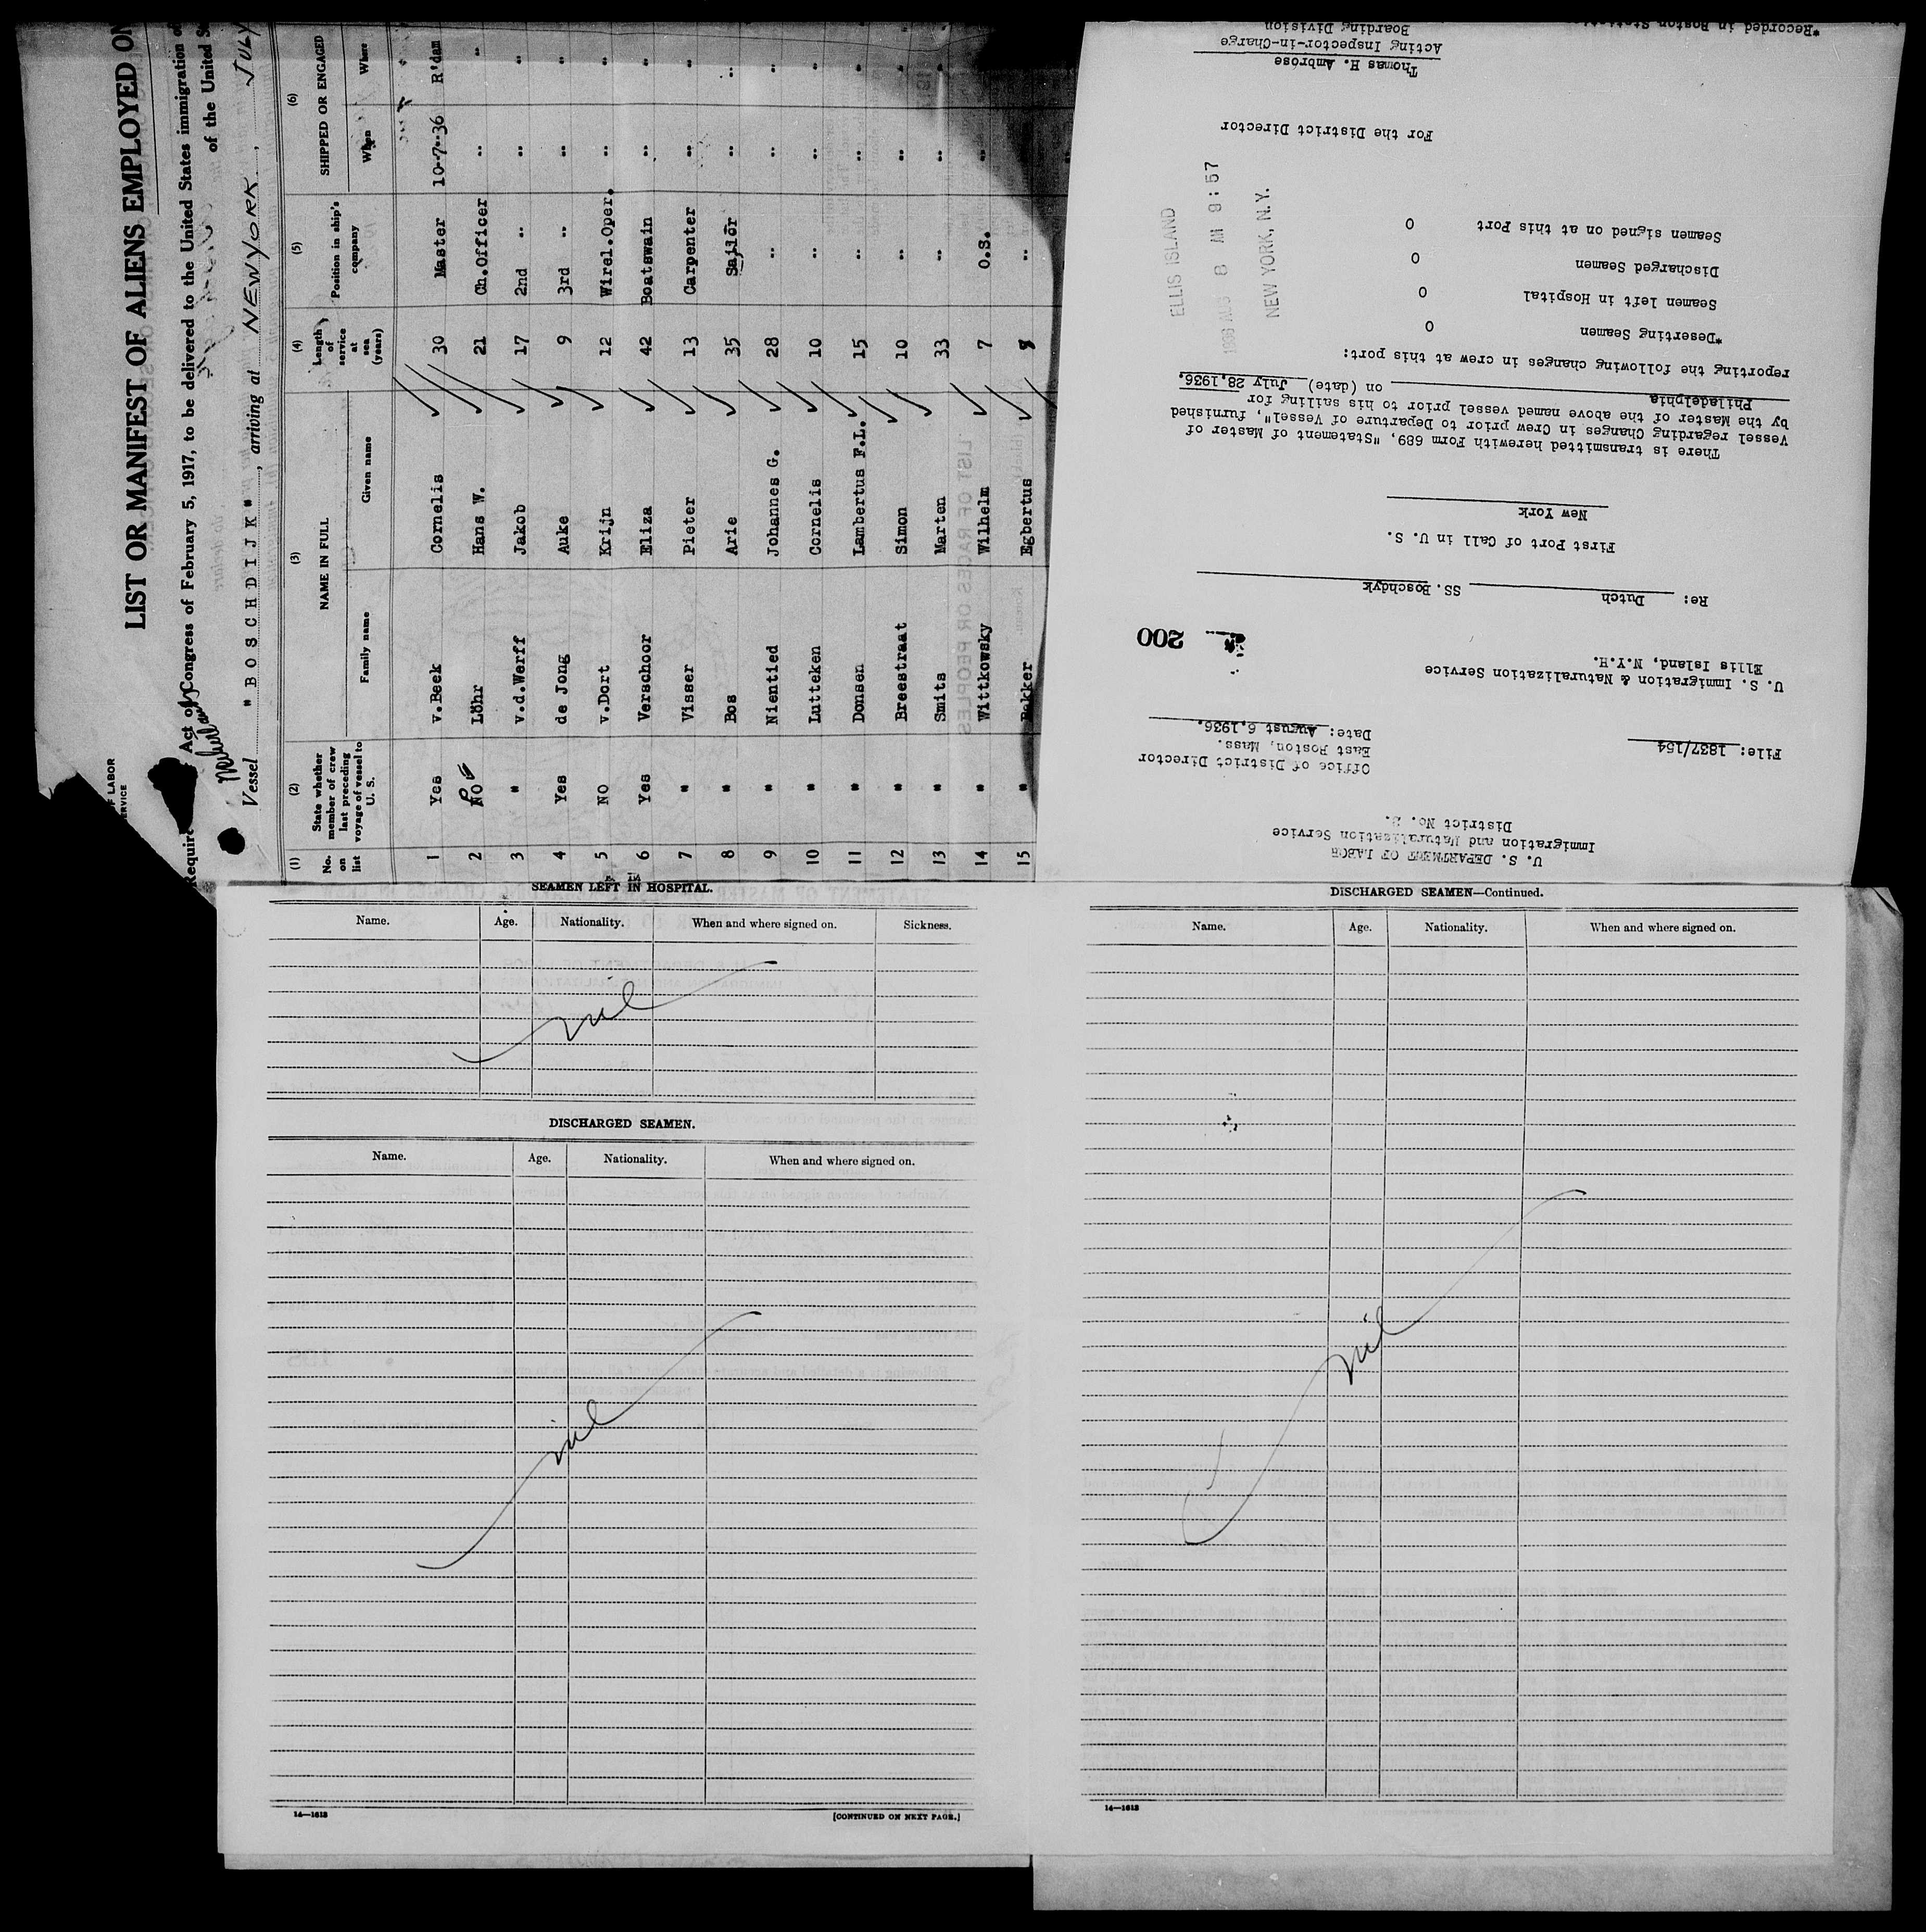 LIST OR MANIFEST OF ALIENS EMPLOYED ON
Act of Congress of February 5, 1917, to be delivered to the United States immigration
of the United
Vessel "BOSCHDIJK", arriving at NEWYORK, JULY
OF LABOR
(1) (2) (3) (4) (5) (6)
No. on list State whether member of crew last preceding voyage of vessel to U. S. NAME IN FULL Length of service at sea (years) Position in ship's company SHIPPED OR ENGAGED
Family name Given name When Where
1 Yes v.Beek Cornelis 30 Master 10-7-36 R'dam
2 NO Löhr Hans W. 21 Ch.Officer " "
3 " v.d.Werff Jakob 17 2nd " " "
4 Yes de Jong Auke 9 3rd " " "
5 NO v.Dort Krijn 12 Wirel.Oper. " "
6 Yes Verschoor Eliza 42 Boatswain " "
7 " Visser Pieter 13 Carpenter " "
8 " Bos Arie 35 Sailor " "
9 " Nientied Johannes G. 28 " " "
10 " Lutteken Cornelis 10 " " "
11 " Donsen Lambertus F.L. 15 " " "
12 " Breestraat Simon 10 " " "
13 " Smits Marten 33 " " "
14 " Wittkowsky Wilhelm 7 O.S. " "
15 " Bakker Egbertus " "
U. S. DEPARTMENT OF LABOR
Immigration and Naturalization Service
District No. 2.
File: 1837/154
Office of District Director
East Boston, Mass.
Date: August 6,1936.
U. S. Immigration & Naturalization Service
Ellis Island, N.Y.H.
200
Re: Dutch SS. Boschdyk
First Port of Call in U. S.
New York
There is transmitted herewith Form 689, "Statement of Master of
Vessel regarding Changes in Crew prior to Departure of Vessel", furnished
by the Master of the above named vessel prior to his sailing for
Philadelphia on (date) July 28,1936.
reporting the following changes in crew at this port:
*Deserting Seamen 0
Seamen left in Hospital 0
Discharged Seamen 0
Seamen signed on at this Port 0
ELLIS ISLAND
1936 AUG 8 AM 9:57
NEW YORK, N.Y.
For the District Director
Thomas H. Ambrose
Acting Inspector-in-Charge
Boarding Division
*Recorded in Boston
SEAMEN LEFT IN HOSPITAL.
Name. Age. Nationality. When and where signed on. Sickness.
nil
DISCHARGED SEAMEN.
Name. Age. Nationality. When and where signed on.
nil
14—1613
[CONTINUED ON NEXT PAGE.]
DISCHARGED SEAMEN—Continued.
Name. Age. Nationality. When and where signed on.
nil
14—1613